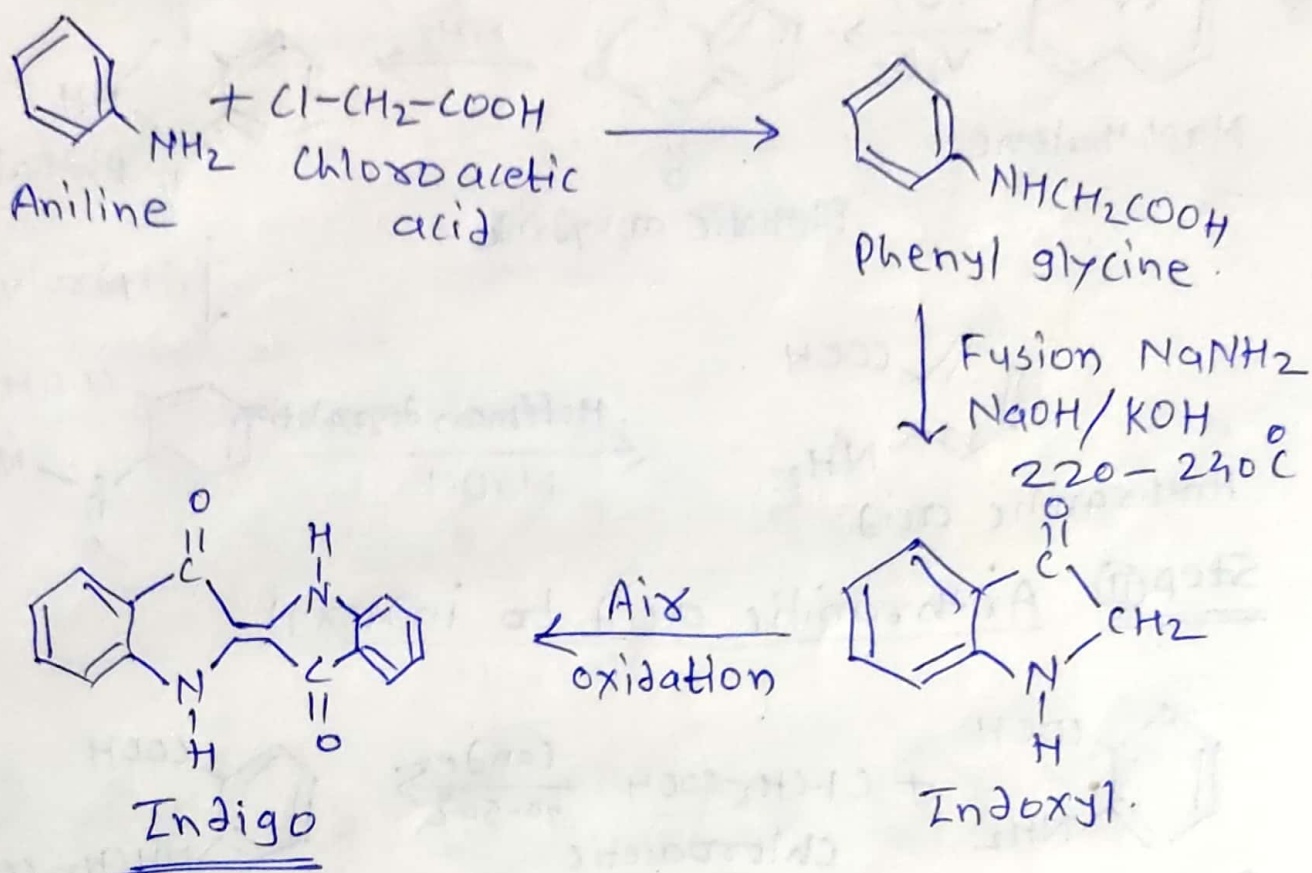 NH2 + Cl-CH2-COOH
Aniline
Chloro acetic
acid
NHCH2COOH
Phenyl glycine.
Fusion NaNH2
NaOH/KOH
220-240°C
O
C
CH2
N
H
Indoxyl.
Air
oxidation
O
C
H
N
N
H
C
O
Indigo